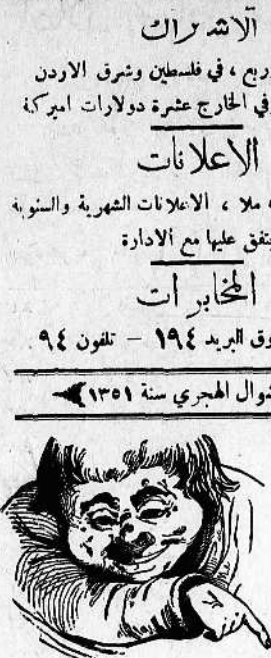 الاشتراك
ربع ، في فلسطين وشرق الاردن
في الخارج عشرة دولارات اميركية
الاعلانات
ملا ، الاعلانات الشهرية والسنوية
يتفق عليها مع الادارة
المخابرات
وق البريد ١٩٤ — تلفون ٩٤
شوال الهجري سنة ١٣٥١